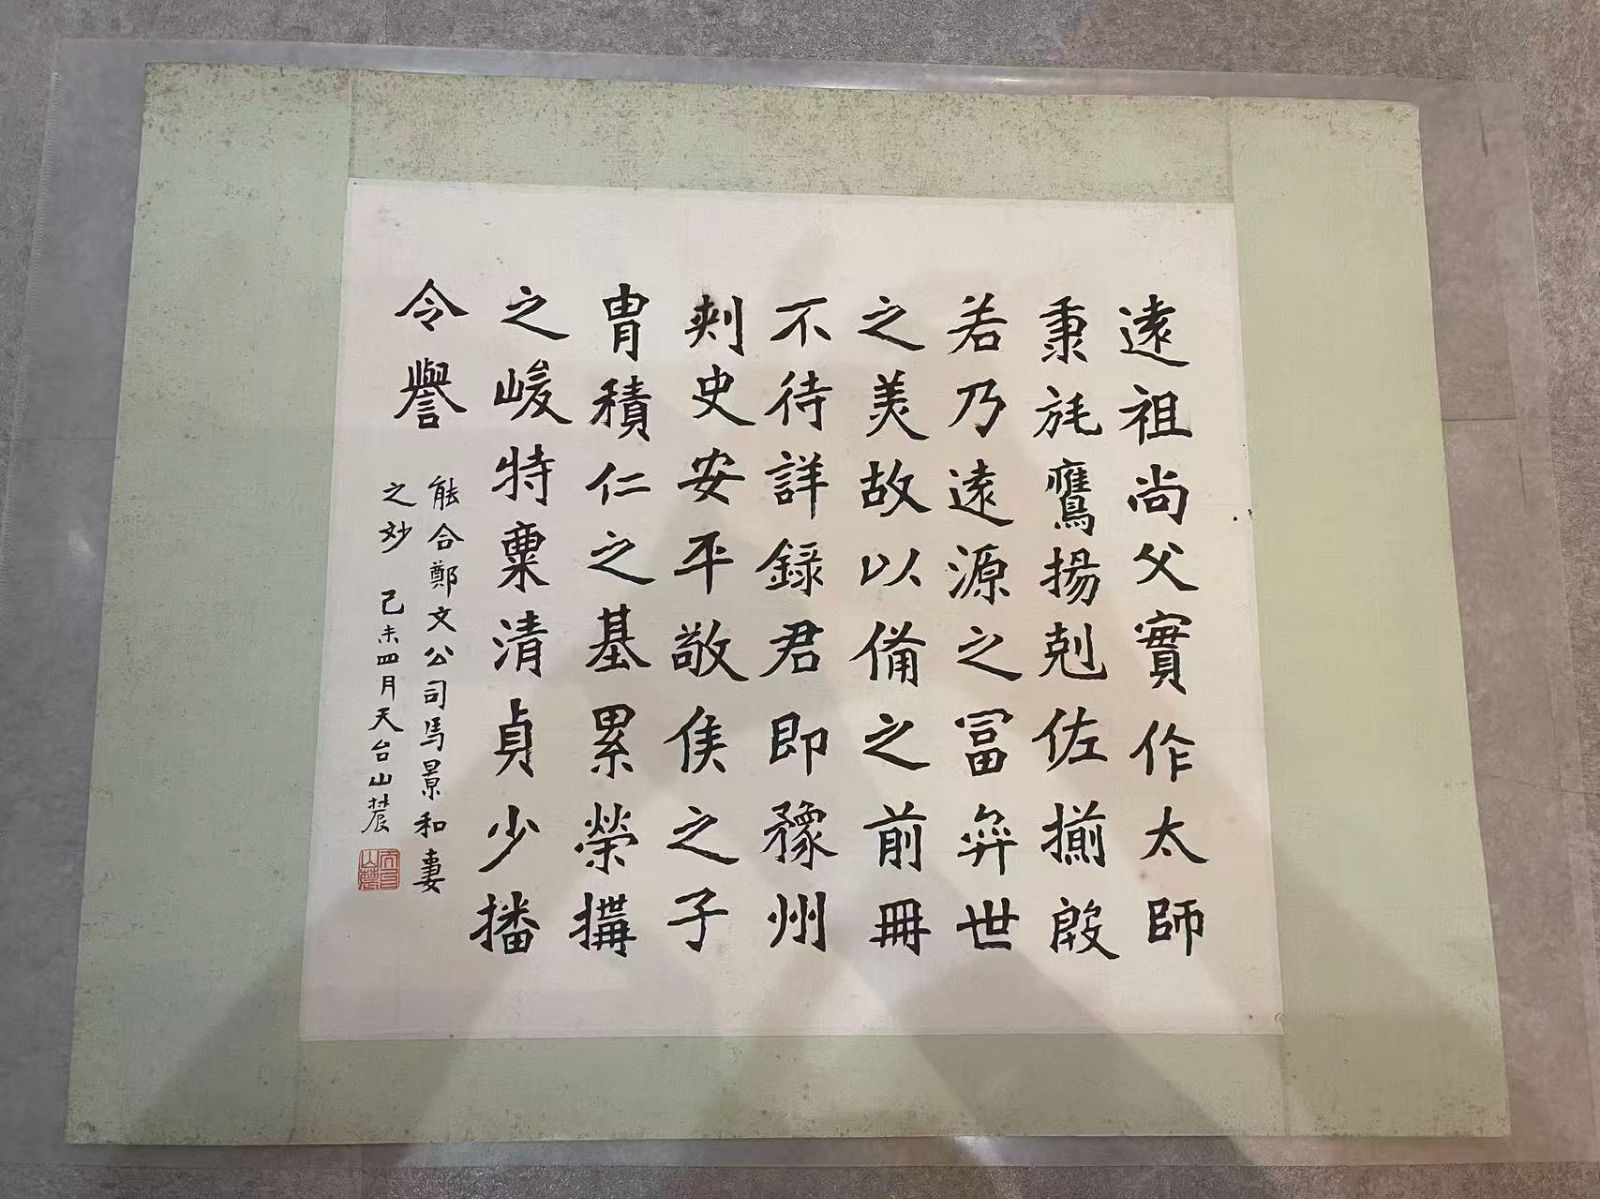 遠祖尚父實作太師
秉旄鷹揚剋佐揃殷
若乃遠源之冨弈世
之美故以備之前冊
不待詳錄君即豫州
刾史安平敬侯之子
胄積仁之基累榮搆
之峻特稟清貞少播
令譽
能合鄭文公司馬景和妻
之妙 己未四月天台山農